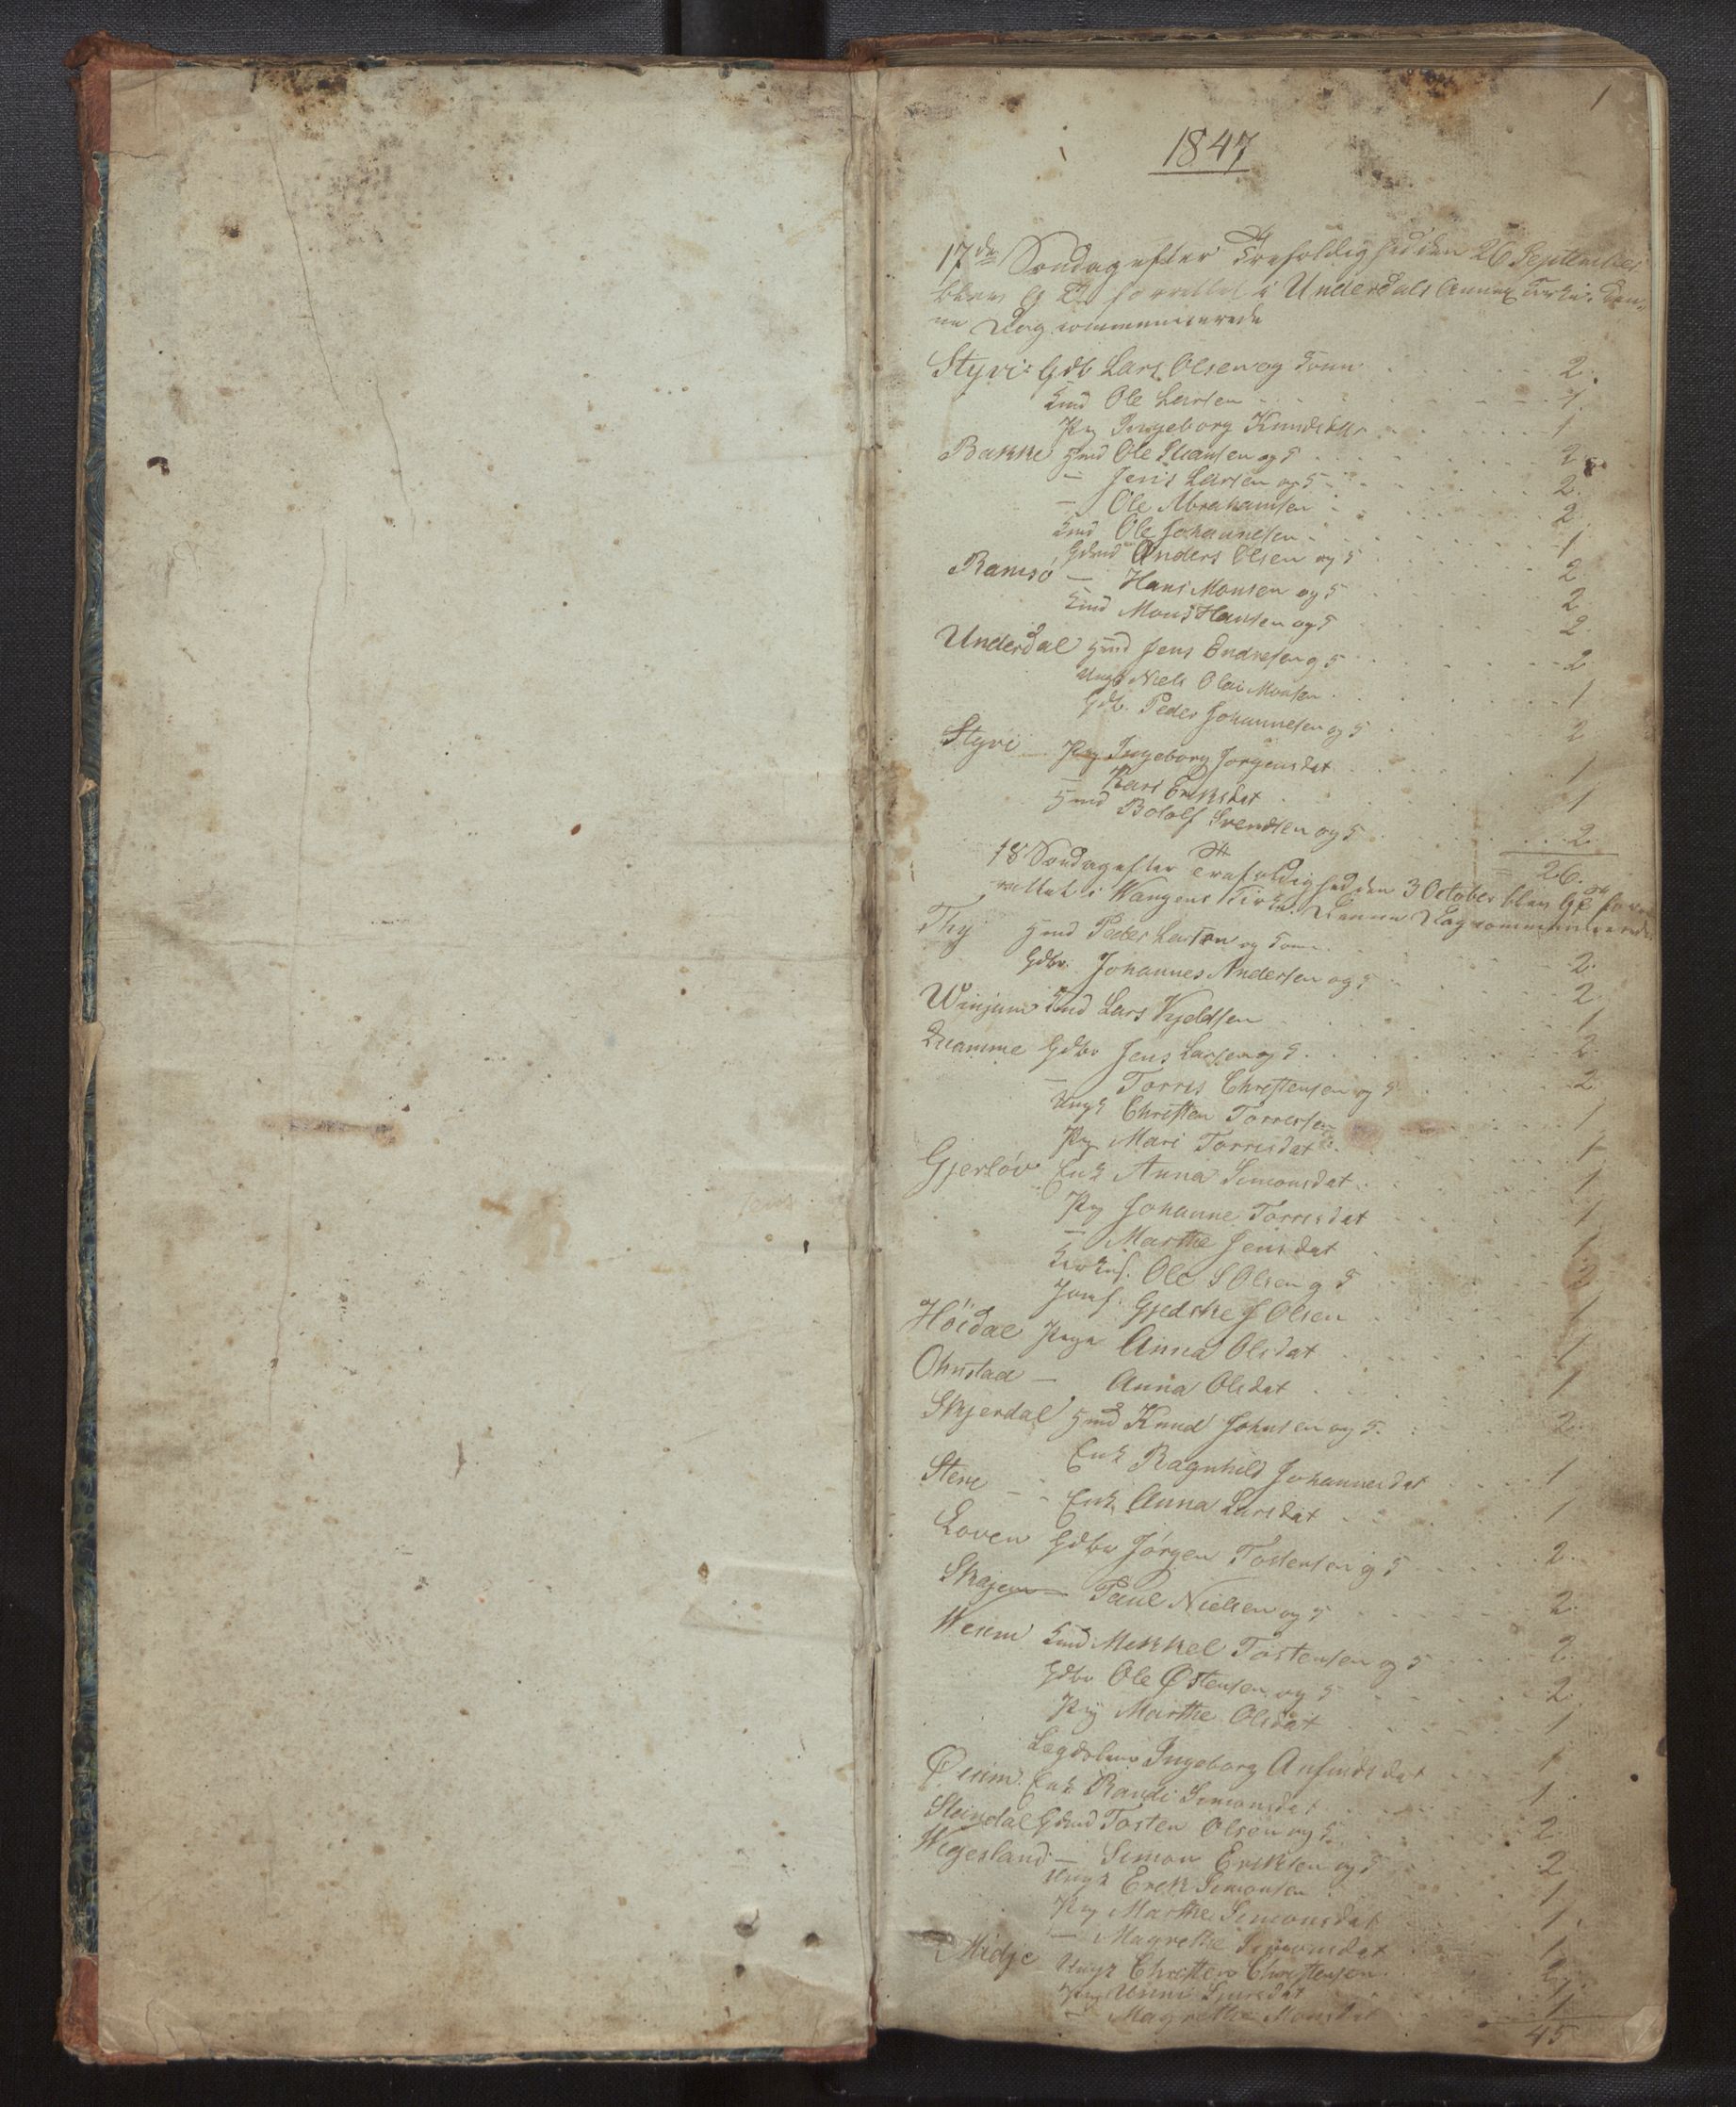 1
1847
17de Søndag efter Trefoldighed den 26 September
blev G T forrettet i Underdals Annex Kirke. Den¬
ne Dag communicerede
Styvi: Gdb Lars Olsen og Kone 2.
Kmd Ole Larsen 1.
Pig Ingeborg Knudsdatr 1
Bakke Hmd Ole Hansen og K 2
— Jens Larsen og K 2.
— Ole Abrahamsen 2
Kmd Ole Johannesen 1
Gdmd Anders Olsen og K 2
Ramsö — Hans Monsen og K 2
Kmd Mons Hansen og K 2
Underdal Hmd Jens Endresen og K 2
Ungk Niels Olai Monsen 1
Gdb. Peder Johannesen og K 2
Styvi Pig Ingeborg Jörgensdat 1
— Kari Eriksdat 1
Hmd Botolf Svendsen og K 2
26.
18 Søndag efter Trefoldighed den 3 October blev G T for¬
rettet i Wangens Kirke. Denne Dag communicerede
Thy Hmd Peder Larsen og Kone 2.
Gdbr. Johannes Andersen og K 2
Winjum Kmd Lars Kjeldsen 1
Qvamme Gdbr Jens Larsen og K 2
— Torris Christensen og K 2
Ungk Christen Torrersen 1
Pig Mari Torrisdat 1
Gjerløv Enk Anna Simonsdat 1
Pig Johanne Torrisdat 1
— Marthe Jensdat 1
Kirkes. Ole S Olsen og K 2
Jomf. Gjedske J Olsen 1
Höidal Pige Anna Olsdat 1
Ohnstad — Anna Olsdat 1
Skjerdal Hmd Knud Johnsen og K 2
Enk Ragnhild Johannesdat 1
Stene — Enk Anna Larsdat 1
Loven Gdbr Jörgen Tostensen og K 2
Skajem — Paul Nielsen og K 2
Weiem Kmd Mikkel Tostensen og K 2
Gdbr Ole Østensen og K 2
Pig Marthe Olsdat 1
Lægdslem Ingeborg Anfindsdat 1
Øeim Enk Randi Simonsdat 1
Steindal Gdmd Tosten Olsen og K 2
Wigesland — Simon Eriksen og K 2
Ungk Erik Simonsen 1
Pig Marthe Simonsdat 1
— Magrethe Simonsdat 1
Midje Ungk Christen Christensen
Pig Unni
— Magrethe Monsdat 1
45